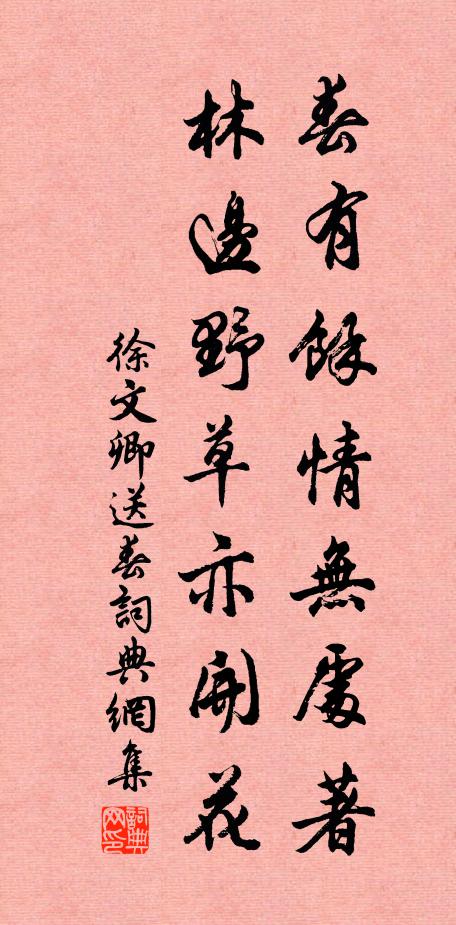 春有餘情無處著
林邊野草亦開花
徐文卿送春詞典網集
詞典網印